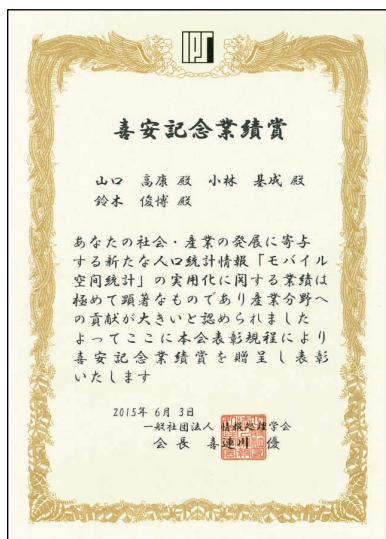 IPSJ
喜安記念業績賞
山口 高康 殿 小林 基成 殿
鈴木 俊博 殿
あなたの社会・産業の発展に寄与
する新たな人口統計情報「モバイル
空間統計」の実用化に関する業績は
極めて顕著なものであり産業分野へ
の貢献が大きいと認められました
よってここに本会表彰規程により
喜安記念業績賞を贈呈し表彰
いたします
2015年 6月 3日
一般社団法人 情報処理学会
会長 喜連川 優